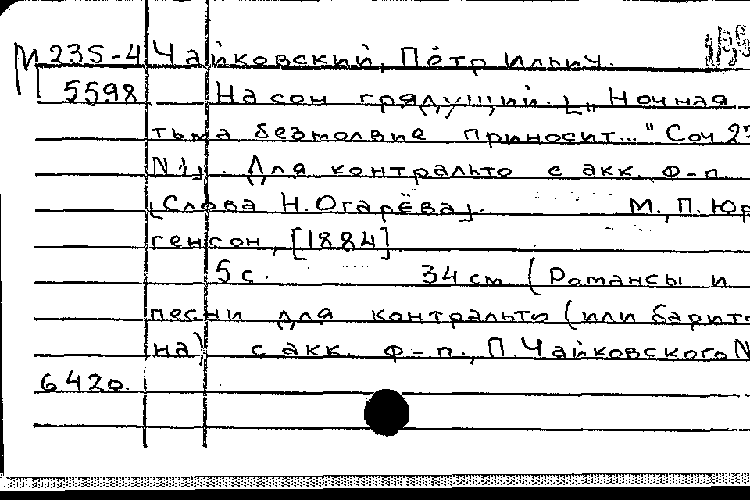 М 235-4 Чайковский, Пётр Ильич.
5598 На сон грядущий. [„Ночная
тьма безмолвие приносит..." Соч 27
N1]. Для контральто с акк. ф-п.
[Слова Н. Огарёва]. М., П. Юр
генсон, [1884]
5 с. 34 см (Романсы и
песни для контральто (или барито
на) с акк. ф-п., П. Чайковского N
6420.